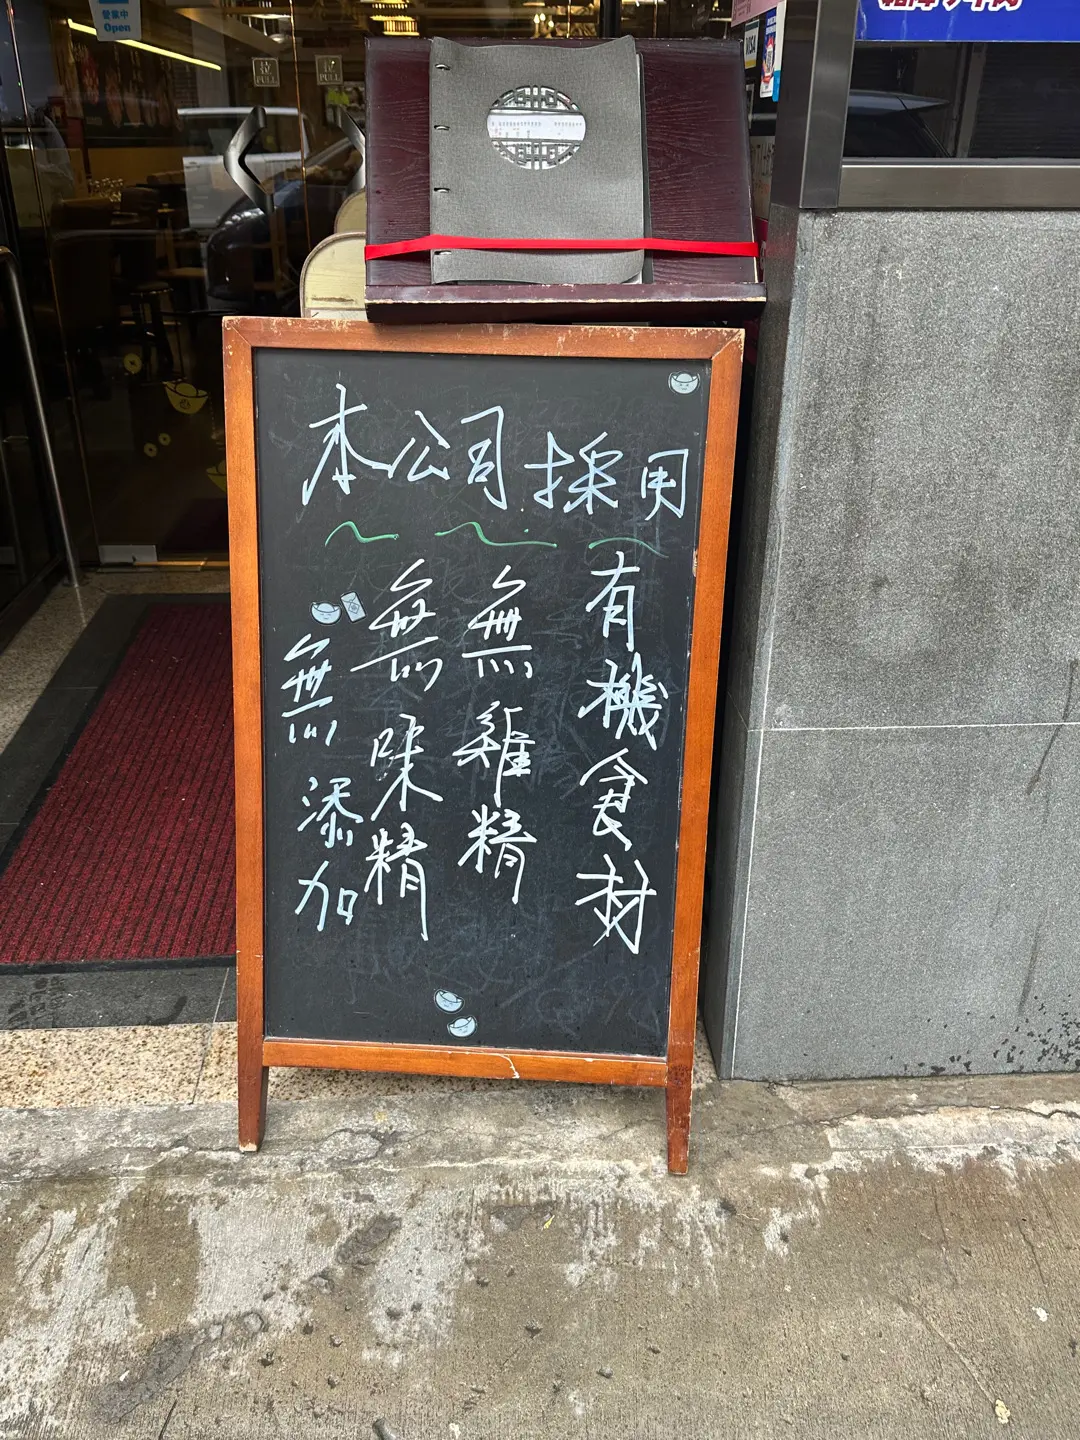 營業中
Open
拉
PULL
拉
PULL
VISA
本公司採用
有機食材
無雞精
無味精
無添加